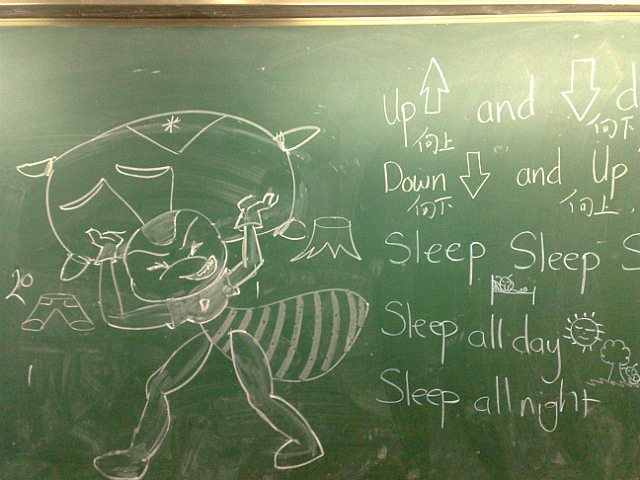 Up and d
向上 向下
Down and Up
向下 向上
Sleep Sleep S
Sleep all day
Sleep all night